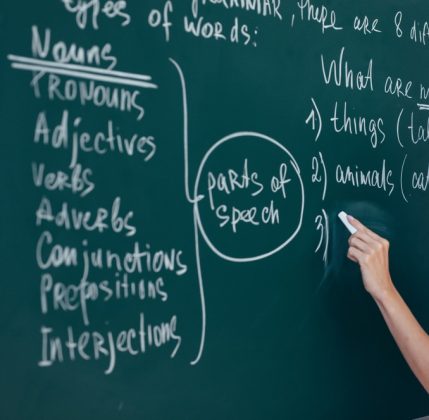 types of GRAMMAR, there are 8
of words:
Nouns
Pronouns
Adjectives
Verbs
Adverbs
Conjunctions
Prepositions
Interjections
parts of
speech
What are
1) things
2) animals
3)